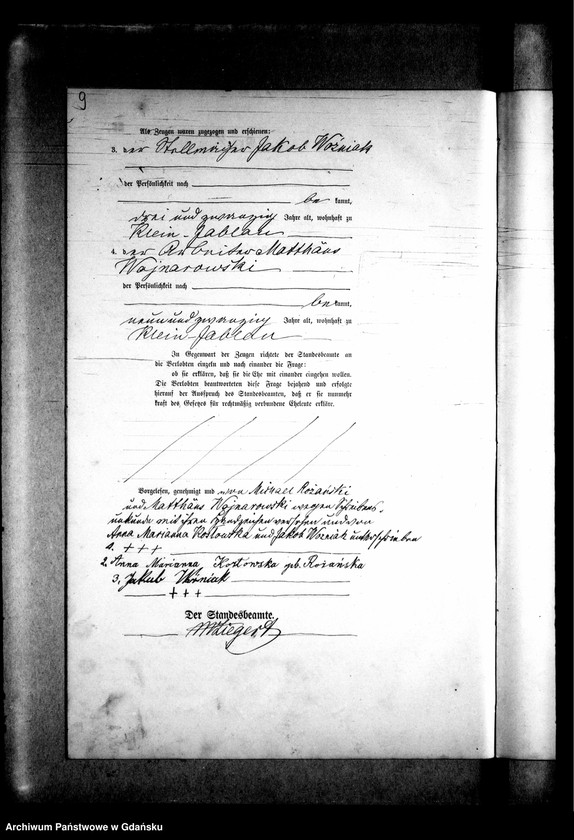 9
Als Zeugen waren zugezogen und erschienen:
3. der Stellmacher Jakob Woźniak
der Persönlichkeit nach
be kannt,
drei und zwanzig Jahre alt, wohnhaft zu
Klein-Jablau
4. der Arbeiter Matthäus
Wojnarowski
der Persönlichkeit nach
be kannt,
neun und zwanzig Jahre alt, wohnhaft zu
Klein-Jablau
In Gegenwart der Zeugen richtete der Standesbeamte an
die Verlobten einzeln und nach einander die Frage:
ob sie erklären, daß sie die Ehe mit einander eingehen wollen.
Die Verlobten beantworteten diese Frage bejahend und erfolgte
hierauf der Ausspruch des Standesbeamten, daß er sie nunmehr
kraft des Gesetzes für rechtmäßig verbundene Eheleute erkläre.
Vorgelesen, genehmigt und von Michael Rożański
und Matthäus Wojnarowski wegen Schreibens-
unkunde mit ihren Handzeichen versehen und von
Anna Marianna Kozlowska und Jakob Woźniak unterschrieben
1. + + +
2. Anna Marianna Kozlowska geb. Rożańska
3. Jakub Woźniak
+ + +
Der Standesbeamte.
Archiwum Państwowe w Gdańsku